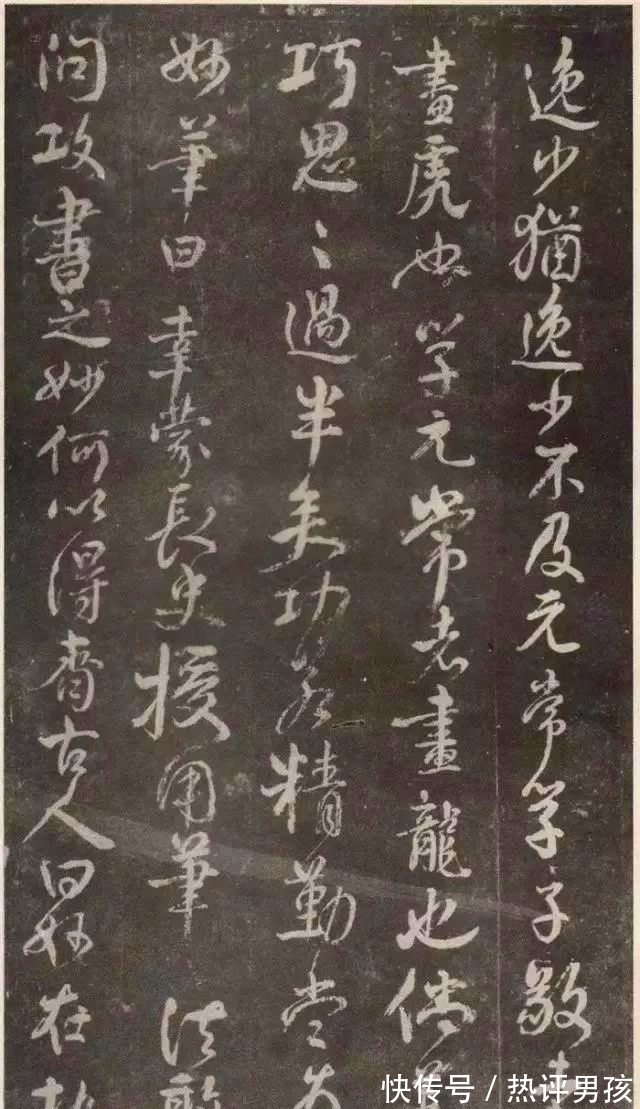 逸少猶逸少不及元常學子敬
畫虎也學元常者畫龍也倘
巧思〻過半矣功若精勤當為
妙筆曰幸蒙長史授用筆法敢
問攻書之妙何以得齊古人曰妙在
快传号 / 热评男孩